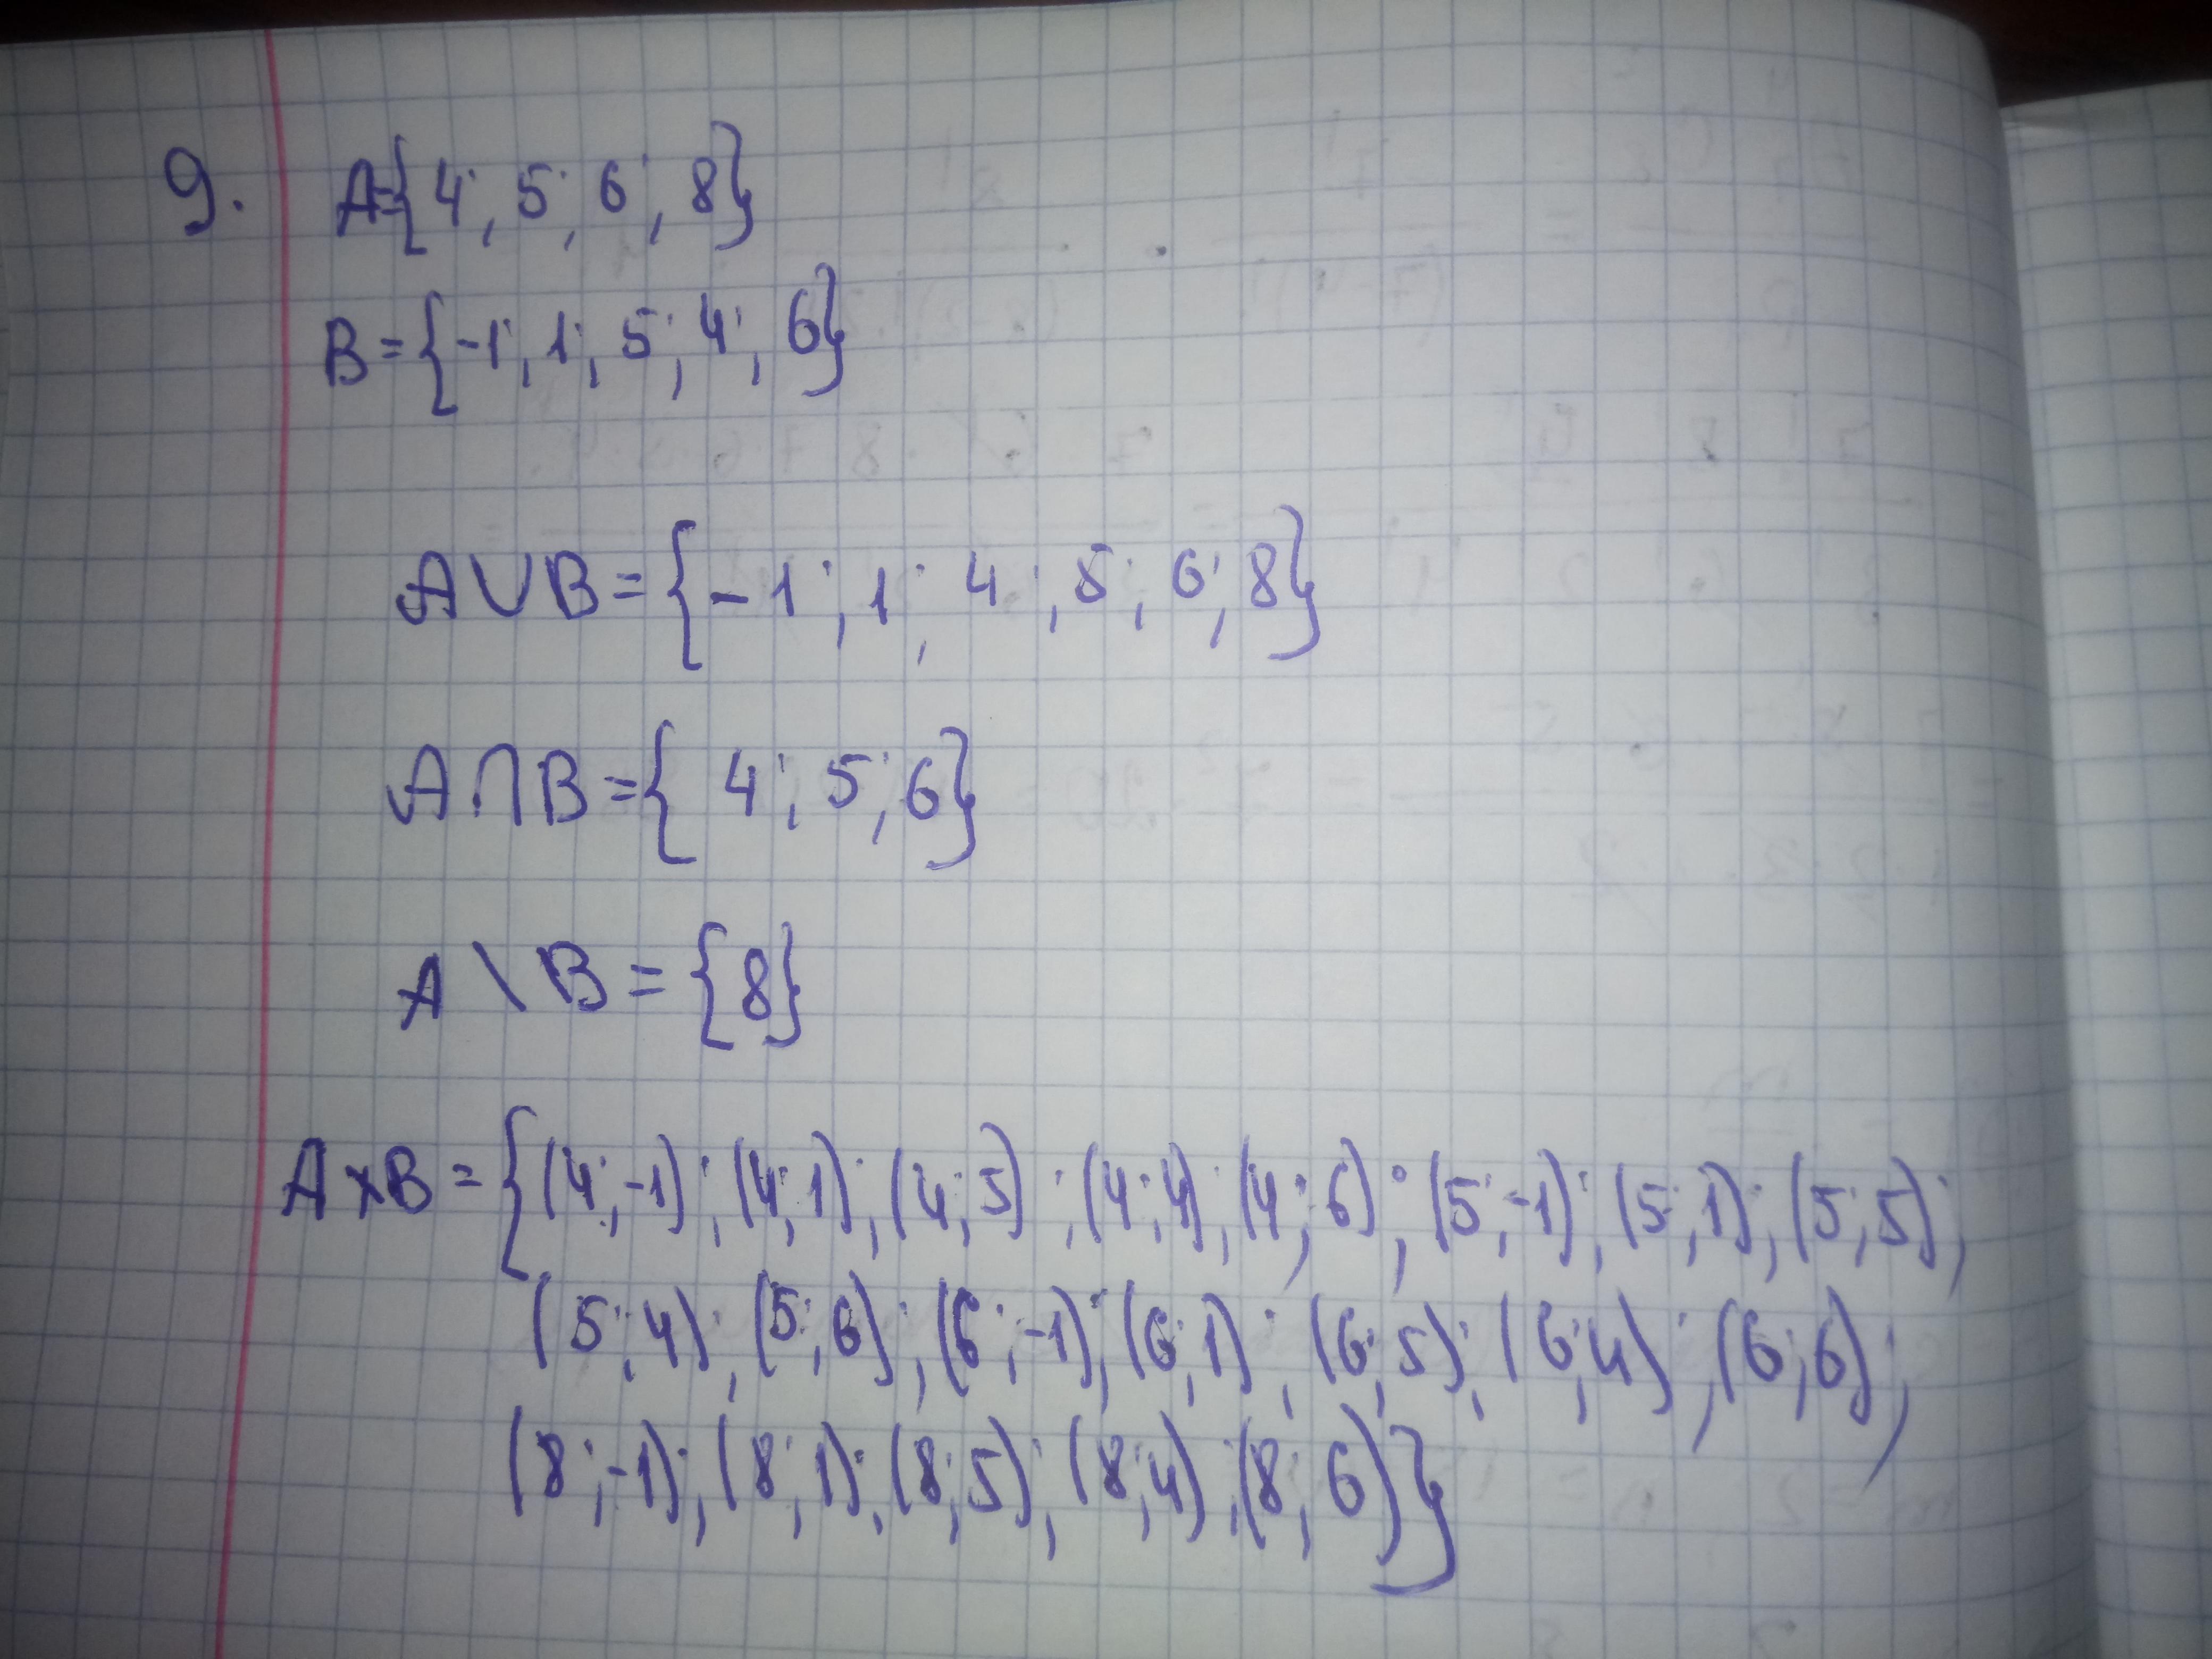 9. A={4; 5; 6; 8}
B={-1; 1; 5; 4; 6}
A∪B={-1; 1; 4; 5; 6; 8}
A∩B={4; 5; 6}
A\B={8}
A×B={(4;-1); (4;1); (4;5); (4;4); (4;6); (5;-1); (5;1); (5;5);
(5;4); (5;6); (6;-1); (6;1); (6;5); (6;4); (6;6);
(8;-1); (8;1); (8;5); (8;4); (8;6)}